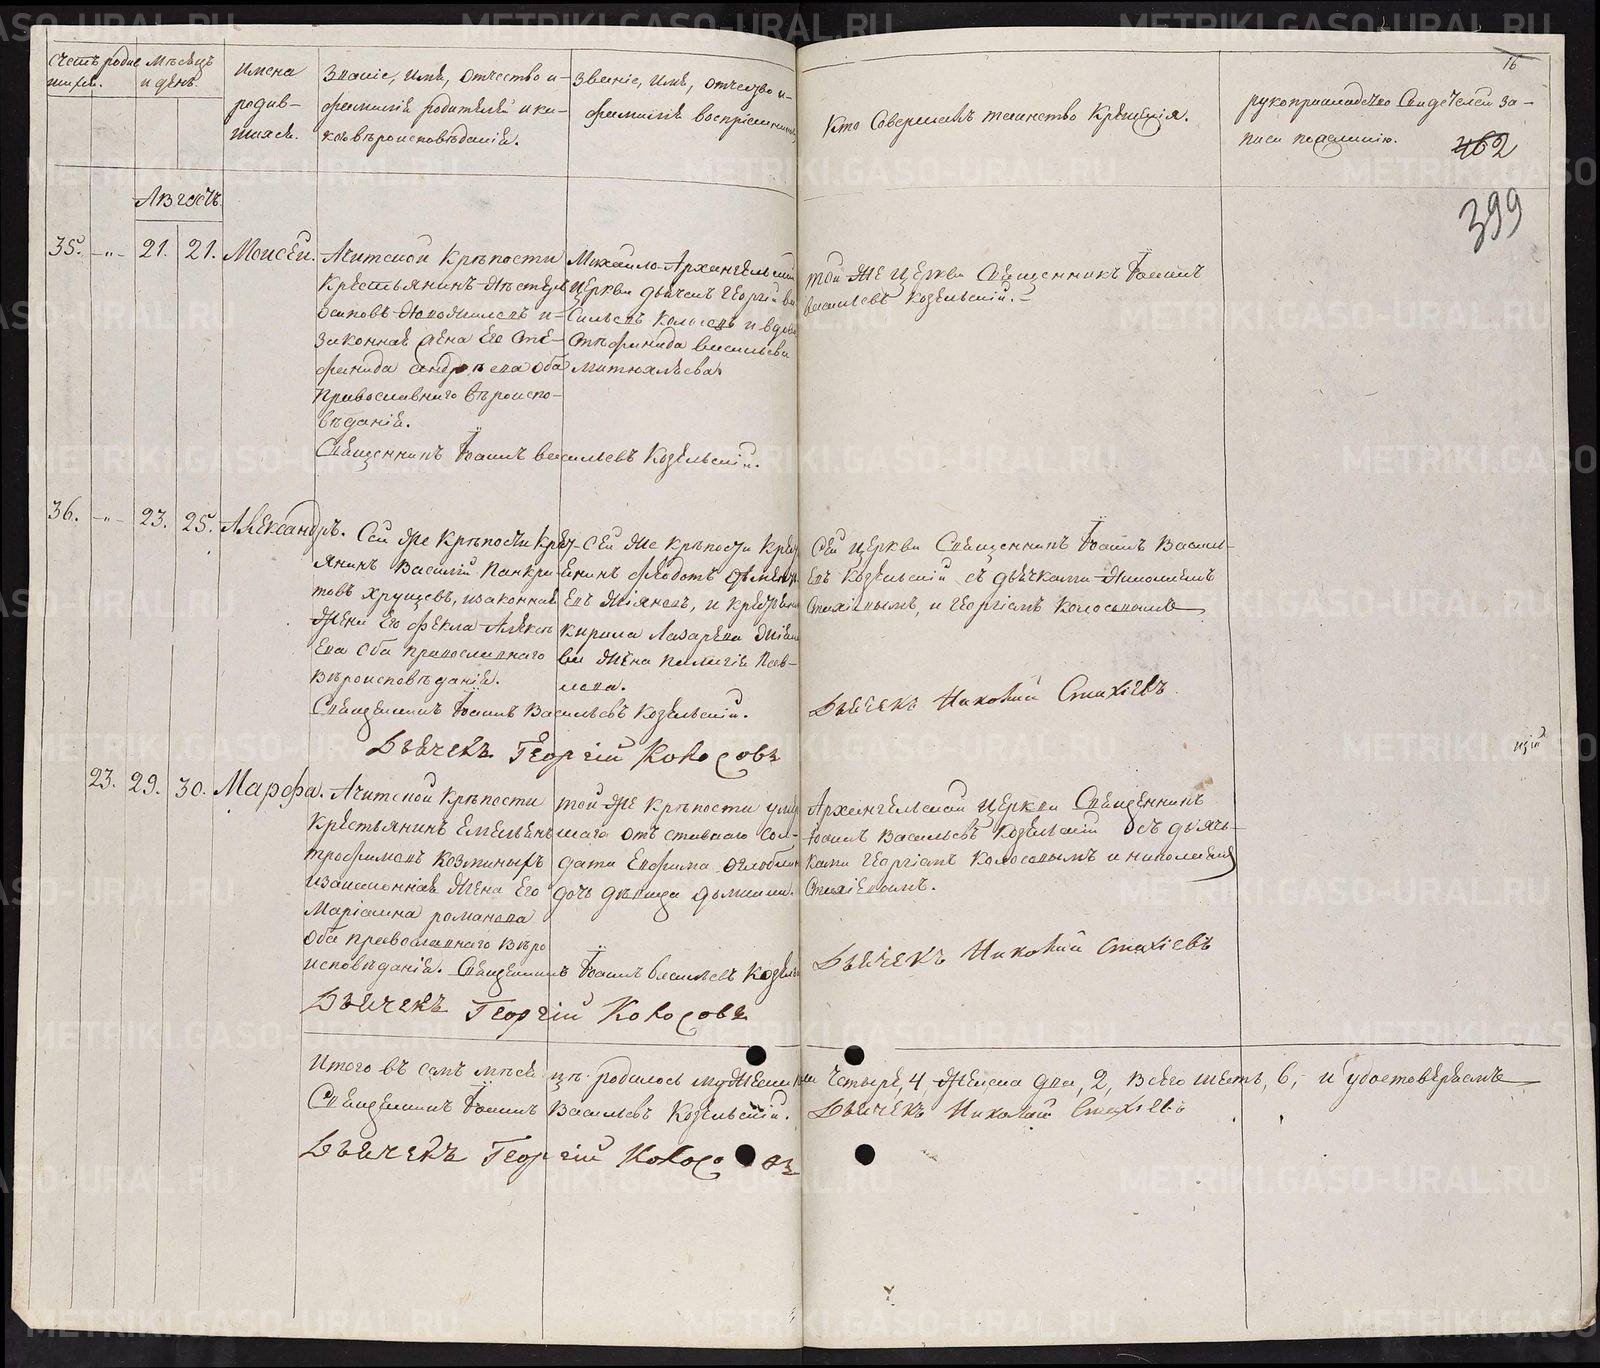 Счетъ родив
шихся.
Мѣсяцъ
и день.
Имена
родив-
шихся.
Званіе, имя, отчество и
фамилія родителей и ка-
кова вѣроисповѣданія.
Званіе, имя, отчество и
фамилія воспріемниковъ
Кто совершалъ таинство Крещенія.
рукоприкладство свидетелей за-
писи по желанію.
16
462
399
Августъ.
35. -"- 21. 21. Моисей.
Ачитской Крѣпости
Крестьянинъ
Осиповъ
законная жена Его Сте-
фанида Андреева оба
Православнаго вѣроиспо-
вѣданія.
Священникъ Іоаннъ Васильевъ Козельскій.
Михаило-Архангельской
Церкви дьячекъ Георгій Ва
сильевъ и вдова
Стефанида Васильева
той же Церкви Священникъ Іоаннъ
Васильевъ Козельскій.
36. -"- 23. 25. Александръ.
Сей же Крѣпости Крест
янинъ Василій Панкра
товъ Хрущевъ, и законная
жена Его Фекла Алексѣ
ева оба православнаго
Вѣроисповѣданія.
Священникъ Іоаннъ Васильевъ Козельскій.
Дьячекъ Георгій Колосовъ
Сей же крѣпости Крест
янинъ Федотъ
и
Кирила Лазарева
ва жена Пелагія Пав-
лова.
Сей Церкви Священникъ Іоаннъ Василь-
евъ Козельскій съ дьячками Николаемъ
Стахіевымъ, и Георгіемъ Колосовымъ
Дьячекъ Николай Стахіевъ
23. 29. 30. Марфа.
Ачитской Крѣпости
Крестьянинъ Емельянъ
Трофимовъ Козминыхъ
и законная жена Его
Маріамна Романова
оба православнаго Вѣро
исповѣданія. Священникъ Іоаннъ Васильевъ Козельск
Дьячекъ Георгій Колосовъ
той же Крѣпости умер
шаго отъ ставнаго Сол-
дата Ефима
дочь дѣвица
Архангельской Церкви Священникъ
Іоаннъ Васильевъ Козельскій съ дьяч-
ками Георгіемъ Колосовымъ и Николаемъ
Стахіевымъ.
Дьячекъ Николай Стахіевъ
Итого въ семъ мѣсяцѣ родилось мужеска пола четыре, 4 женска два, 2, всего шесть, 6, и удостовѣряемъ
Священникъ Іоаннъ Васильевъ Козельскій. Дьячекъ Николай Стахіевъ
Дьячекъ Георгій Колосовъ
METRIKI.GASO-URAL.RU